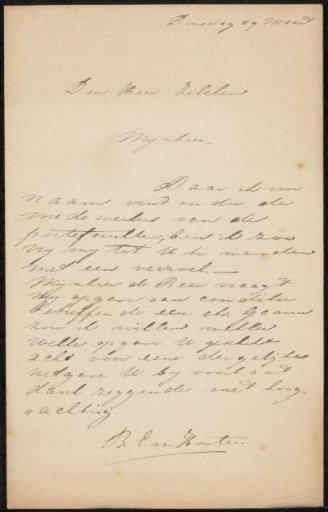 Dinsdag 29 Maart
Den Heer Zilcken
Mijnheer,
Daar ik uw
naam vind onder de
medewerkers van de
portefeuille, ben ik zoo
vrij mij tot U te wenden
met een verzoek. —
Mijnheer de Beer vraagt
mij opgave van conditie
betreffende een ets.
zou U willen
welke opgave U geschikt
acht voor eene dergelijke
uitgave U bij voorbaat
dank zeggende met hoog-
"achting
B. E. v. Houten.